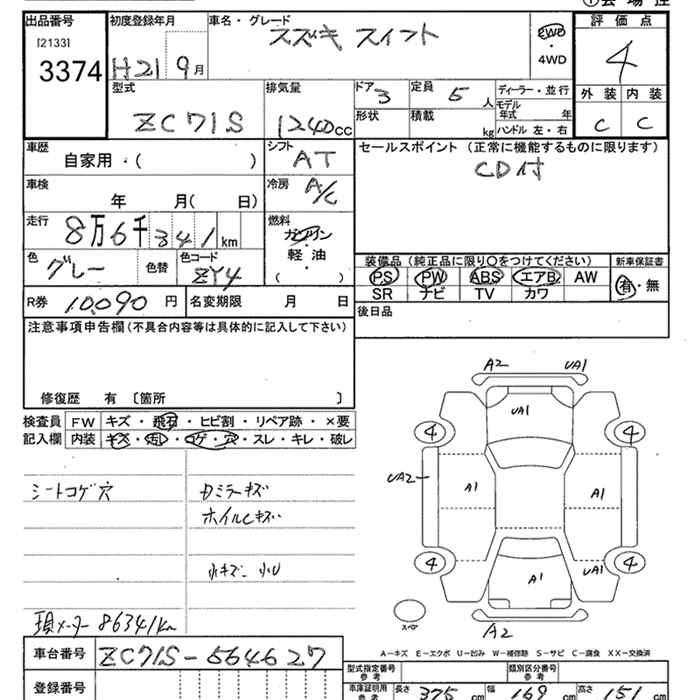 ①会場控
出品番号
[2133]
3374
初度登録年月
H21 9月
車名・グレード
スズキ スイフト
2WD
・
4WD
評価点
4
外装 内装
C C
型式
ZC71S
排気量
1240cc
ドア 3
形状
定員 5 人
積載 kg
ディーラー・並行
モデル年式 年
ハンドル 左・右
車歴
自家用・( )
シフト
AT
車検
年 月( 日)
冷房
A/C
走行
8万6千341km
燃料
ガソリン
軽油
( )
色
グレー
色替
色コード
ZY4
R券 10,090 円
名変期限 月 日
セールスポイント (正常に機能するものに限ります)
CD付
装備品 (純正品に限り○をつけてください)
新車保証書
PS PW ABS エアB AW
有・無
SR ナビ TV カワ
後日品
注意事項申告欄(不具合内容等は具体的に記入して下さい)
修復歴 有 〔箇所 〕
検査員
記入欄
FW キズ・飛石・ヒビ割・リペア跡・×要
内装 キズ・汚レ・コゲ・穴・スレ・キレ・破レ
シートコゲ穴
カミラーキズ
ホイルCキズ
小キズ 小U
現メーター 86341km
A2 UA1
UA1
4 4
UA2
A1 A1
4 4
A1 UA1
スペア
A2
A-キズ E-エクボ U-凹み W-補修跡 S-サビ C-腐食 XX-交換済
車台番号
ZC71S-564627
登録番号
型式指定番号
参考
類別区分番号
参考
車庫証明用
参考
長さ 375 cm
幅 169 cm
高さ 151 cm